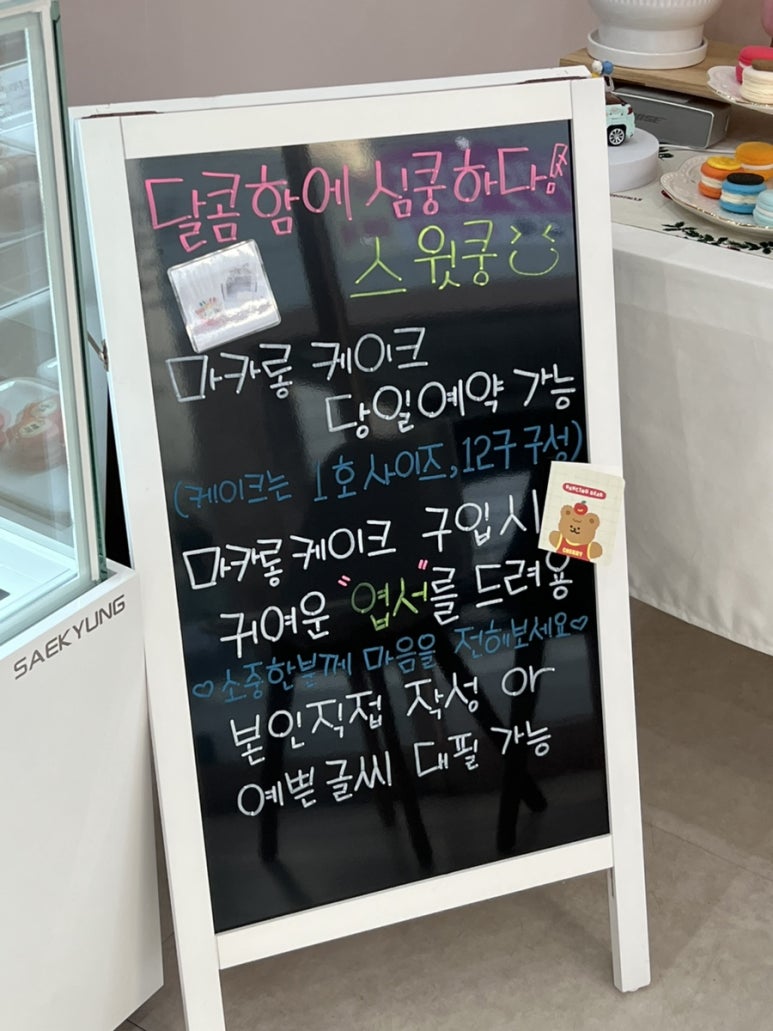 달콤함에 심쿵하다!
스윗쿵
마카롱 케이크
당일예약 가능
(케이크는 1호사이즈, 12구 구성)
마카롱케이크 구입시
귀여운 "엽서"를 드려용
♡소중한분께 마음을 전해보세요♡
본인직접 작성 or
예쁜글씨 대필 가능
CHERRY
SAEKYUNG